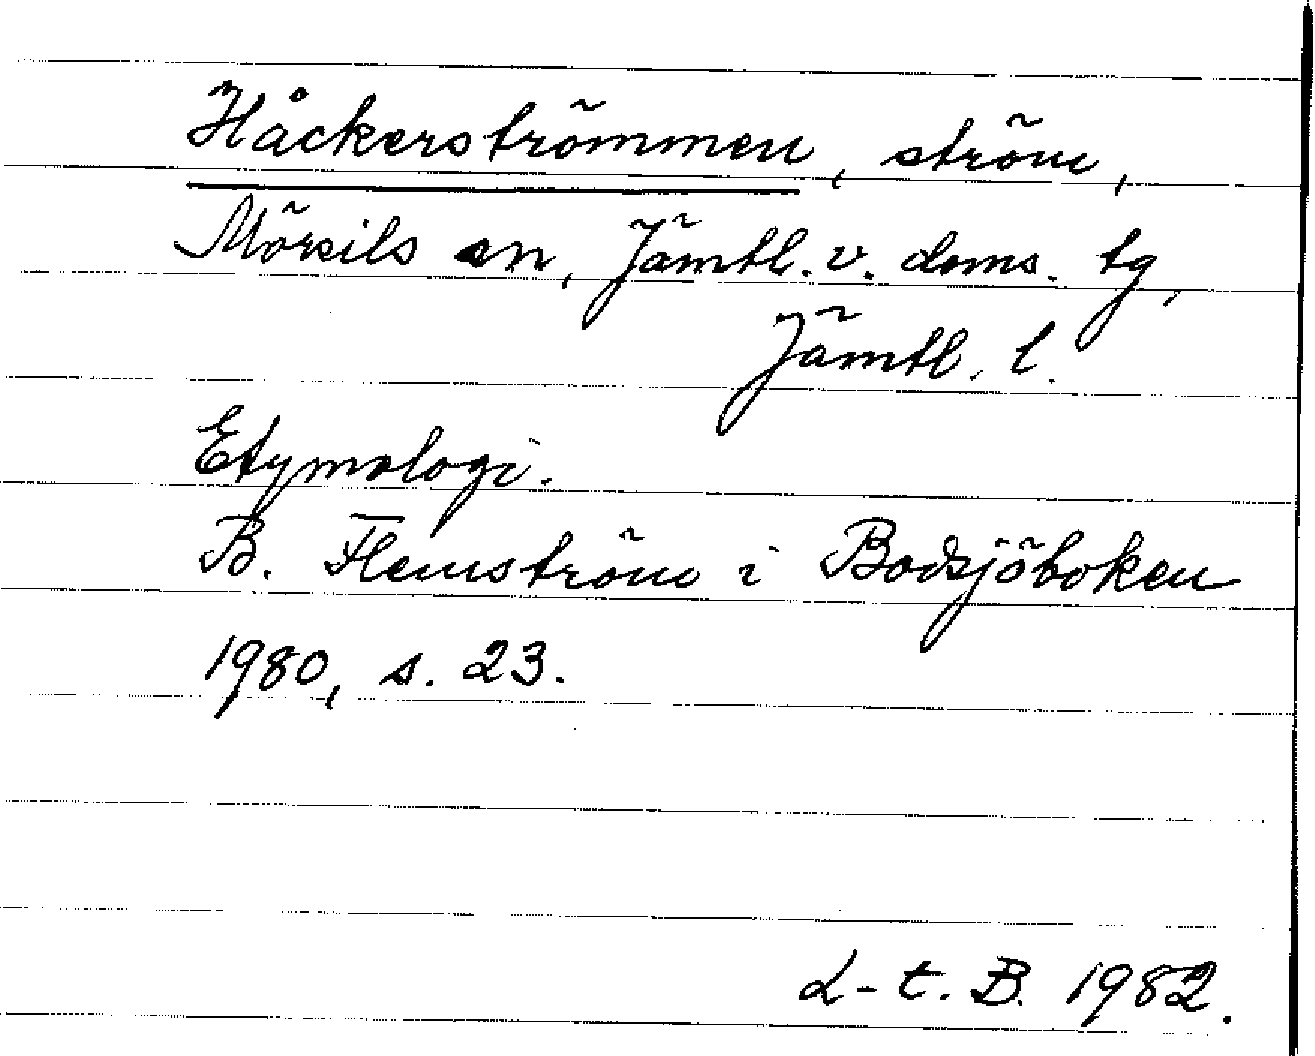 Håckerströmmen, ström,
Mörsils sn, Jämtl. v. doms. tg,
Jämtl. l.
Etymologi.
B. Flemström i Bodsjöboken
1980, s. 23.
L-t. B. 1982.